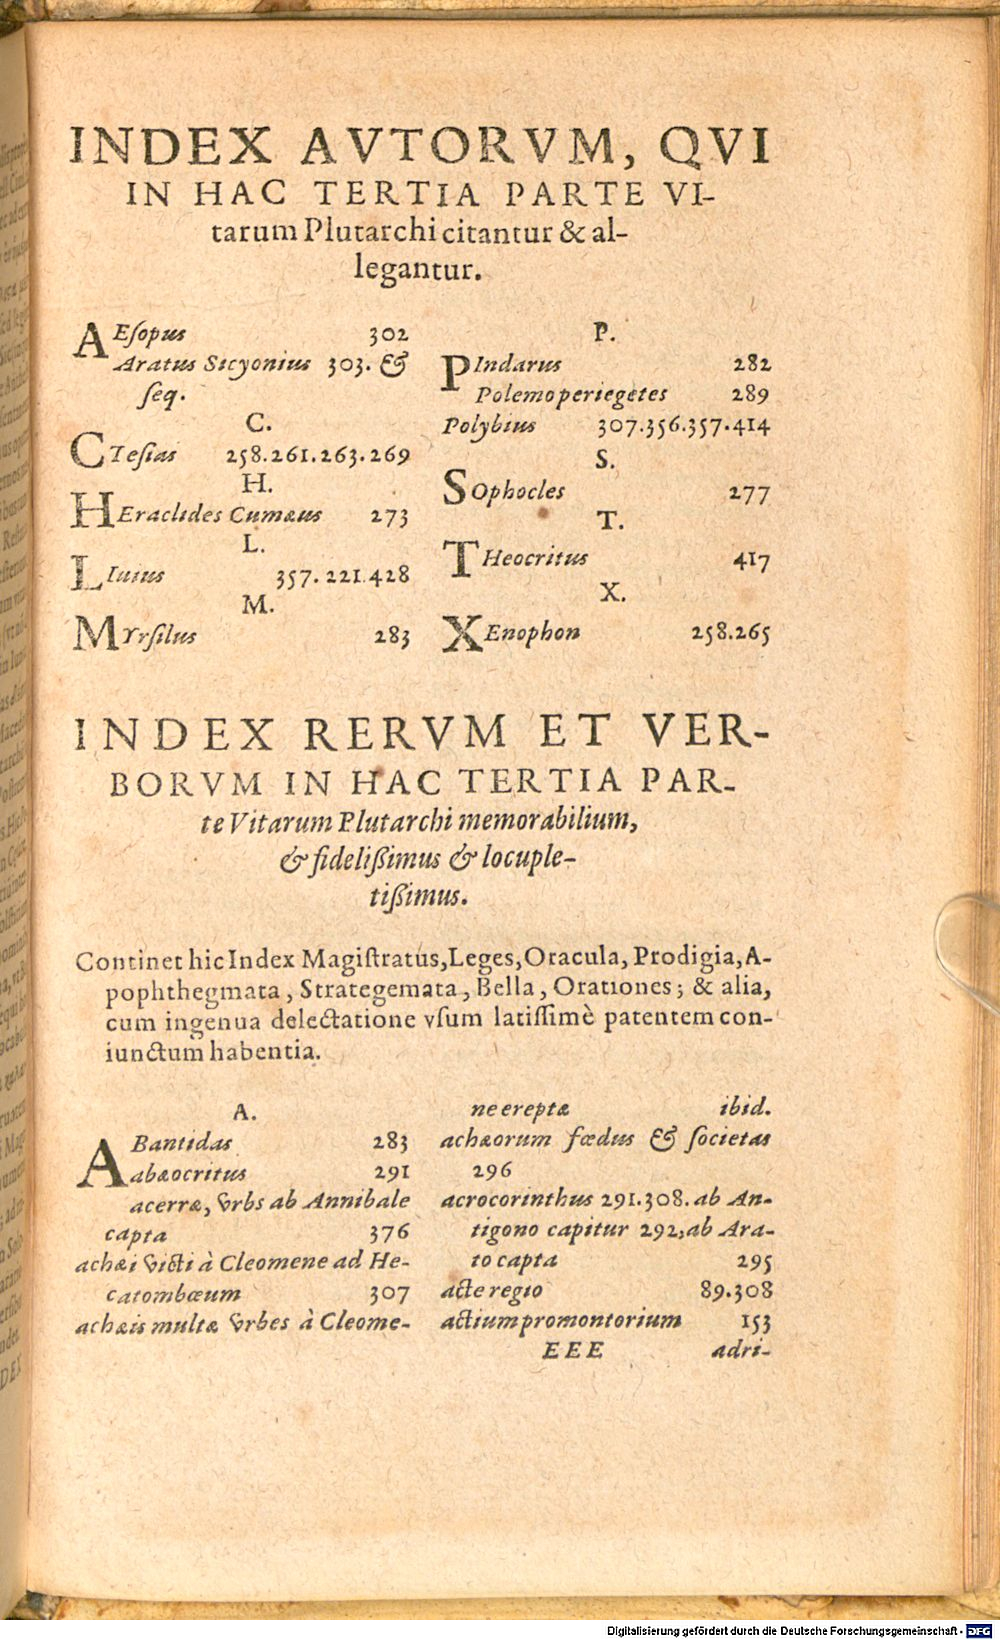 INDEX AVTORVM, QVI
IN HAC TERTIA PARTE VI-
tarum Plutarchi citantur & al-
legantur.
AEſopus 302
Aratus Sicyonius 303. &
ſeq.
C.
CTeſias 258.261.263.269
H.
HEraclides Cumæus 273
L.
LIuius 357.221.428
M.
MYrſilus 283
P.
PIndarus 282
Polemo periegetes 289
Polybius 307.356.357.414
S.
SOphocles 277
T.
THeocritus 417
X.
XEnophon 258.265
INDEX RERVM ET VER-
BORVM IN HAC TERTIA PAR-
te Vitarum Plutarchi memorabilium,
& fidelißimus & locuple-
tißimus.
Continet hic Index Magiſtratus, Leges, Oracula, Prodigia, A-
pophthegmata, Strategemata, Bella, Orationes; & alia,
cum ingenua delectatione vſum latiſſimè patentem con-
iunctum habentia.
A.
ABantidas 283
abæocritus 291
acerræ, vrbs ab Annibale
capta 376
achæi victi à Cleomene ad He-
catombœum 307
achæis multæ vrbes à Cleome-
ne ereptæ ibid.
achæorum fœdus & ſocietas
296
acrocorinthus 291.308. ab An-
tigono capitur 292, ab Ara-
to capta 295
acte regio 89.308
actium promontorium 153
EEE adri-
Digitalisierung gefördert durch die Deutsche Forschungsgemeinschaft - DFG